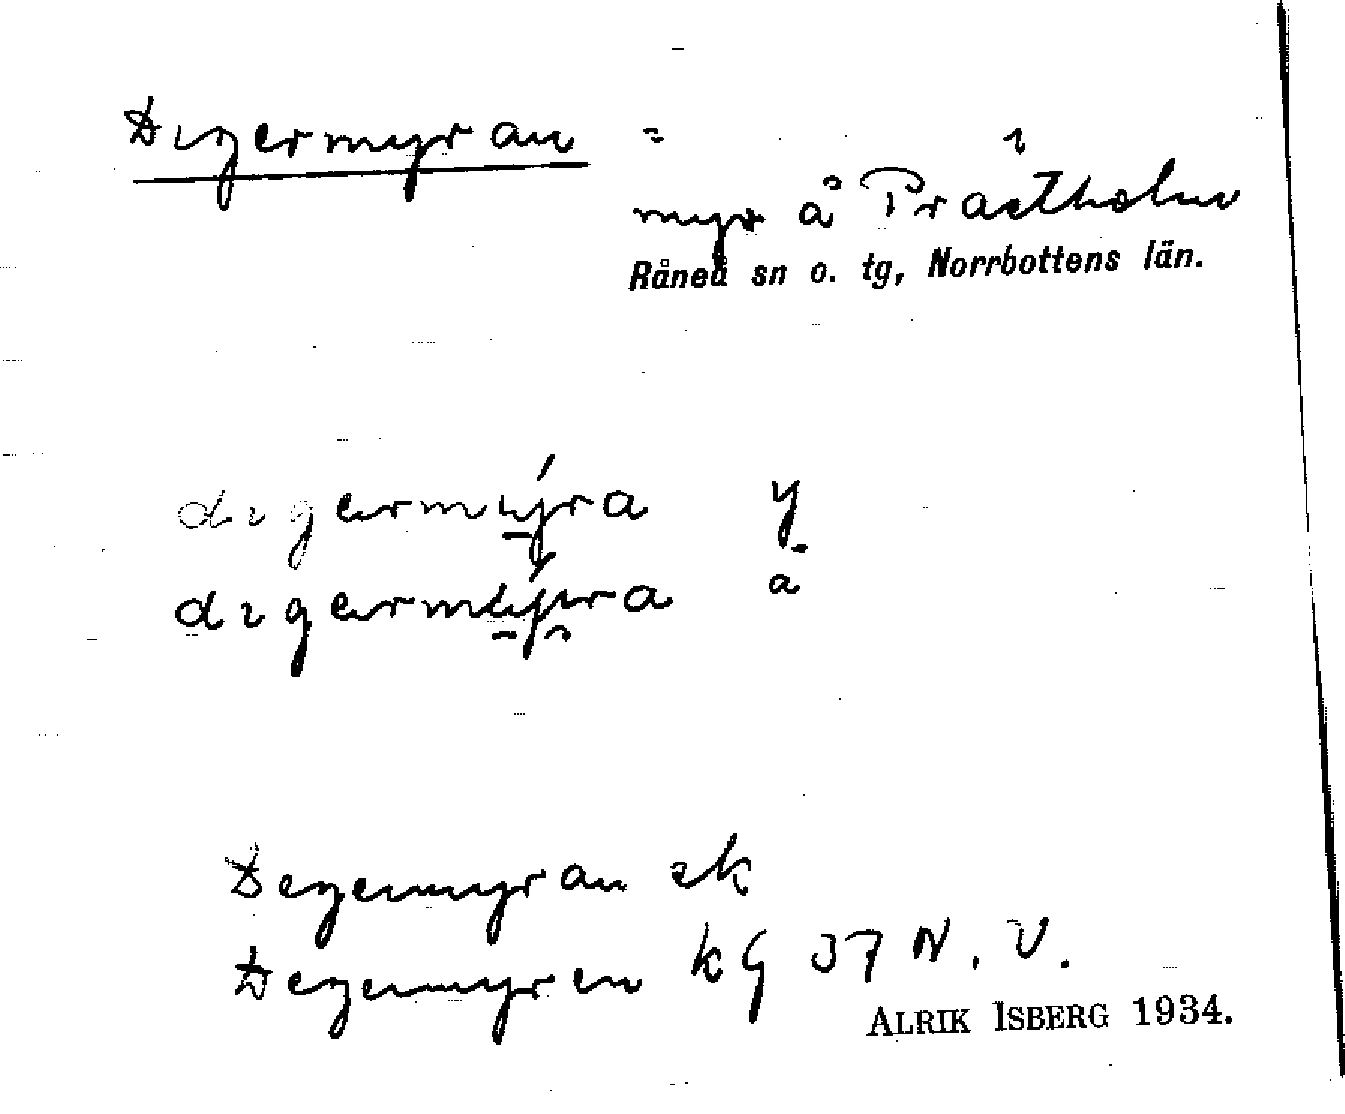 Digermyran =
myr å Prästholm
Råneå sn o. tg, Norrbottens län.
digərmýra y
digərmýra a
Degermyran ek
Degermyren kG 37 N. V.
ALRIK ISBERG 1934.